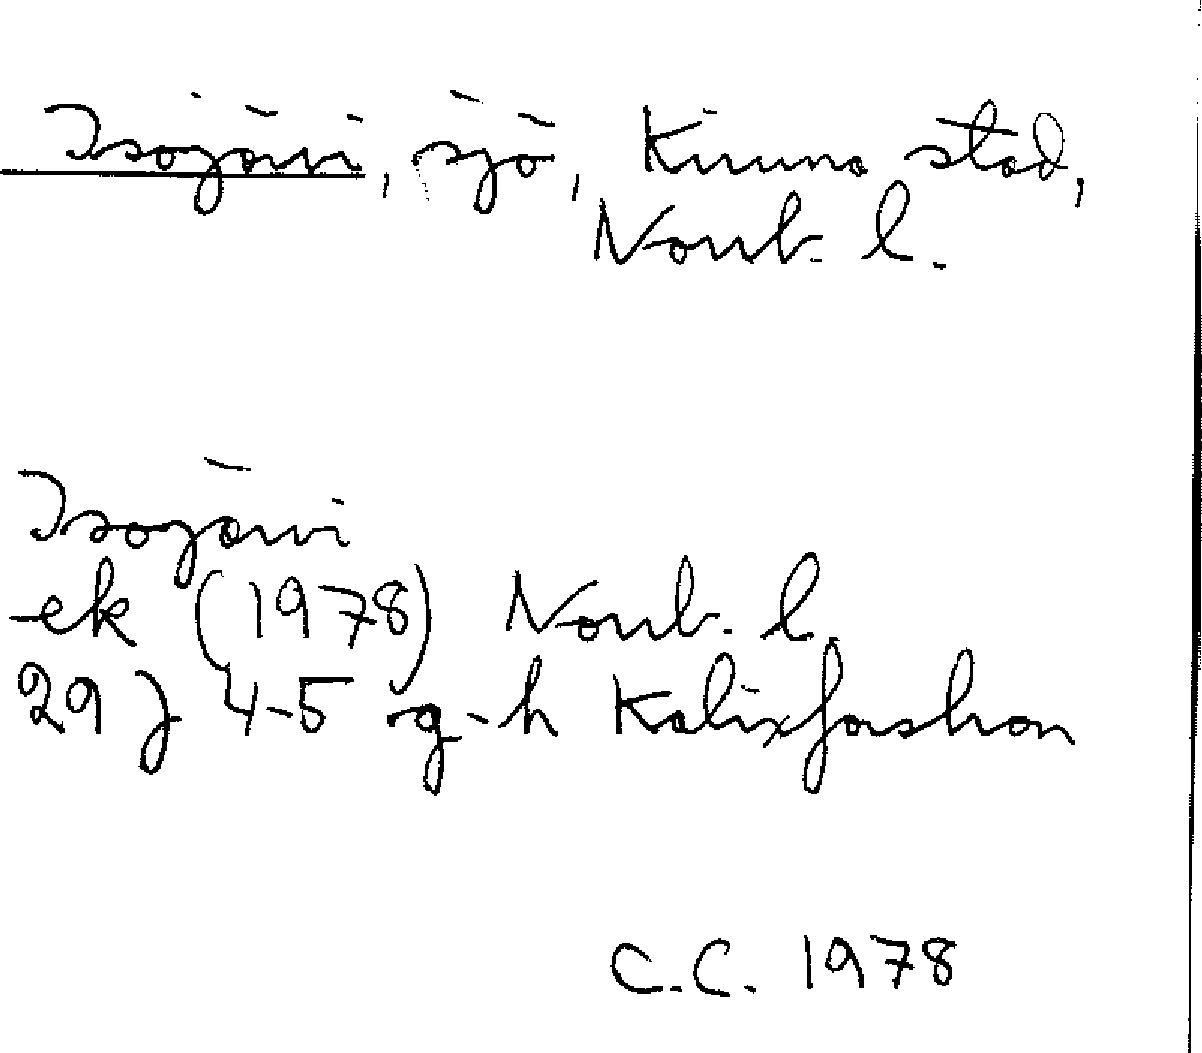 Isojärvi, sjö, Kiruna stad,
Norrb. l.
Isojärvi
ek (1978) Norrb. l.
29 J 4-5 g-h Kalixforsbron
C.C. 1978